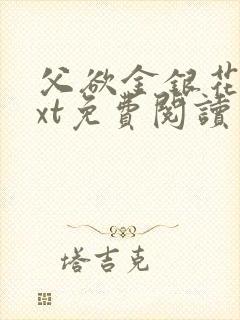 父欲金銀花
xt免費閱讀
塔吉克